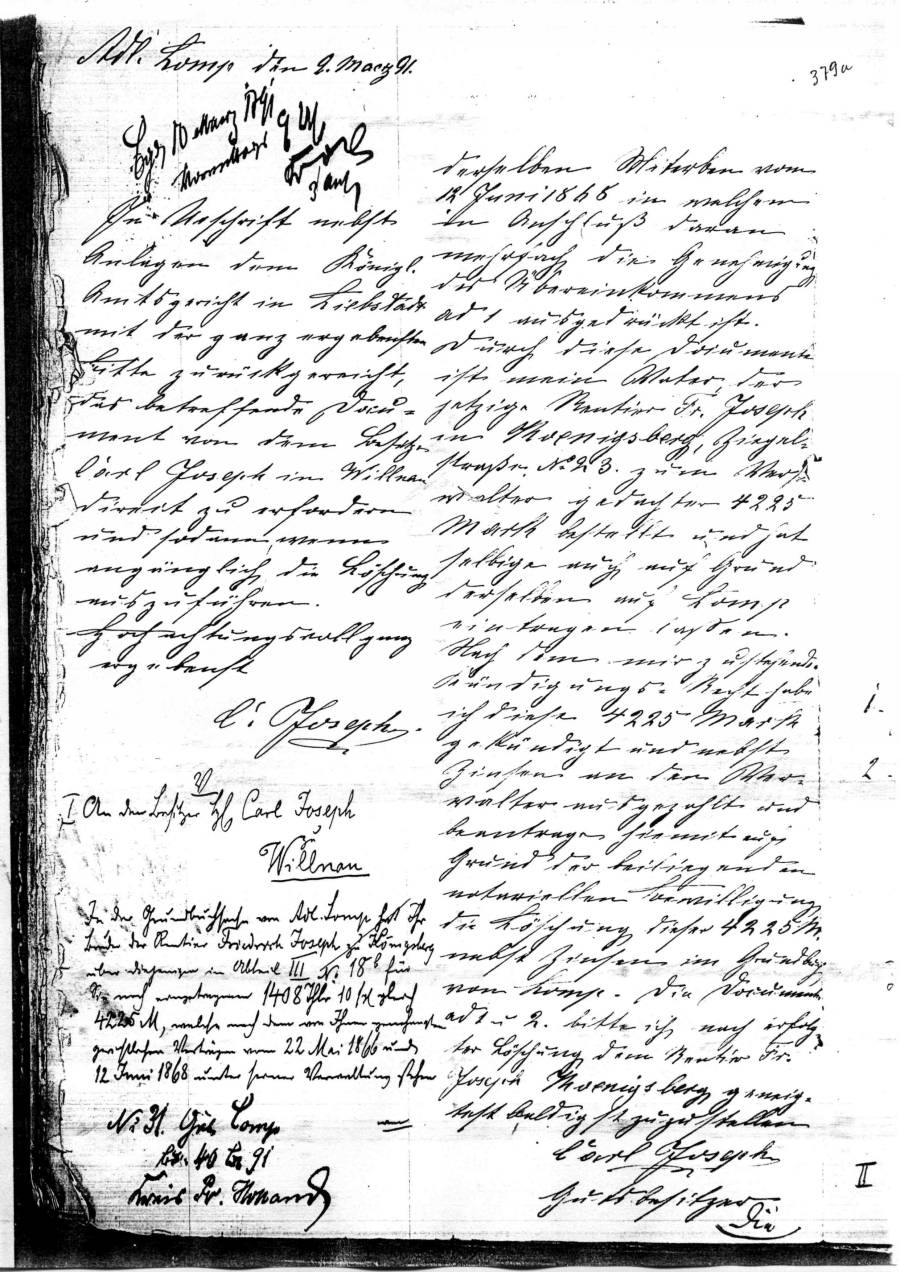 379a
Adl. Komp den 9. Maerz 91.
10 Maerz 1891
Vormittags 9 Uhr
In Urschrift nebst
Anlagen dem Königl.
Amtsgericht in Liebstadt
mit der ganz ergebensten
Bitte zurückgereicht,
das betreffende Docu=
ment von dem Besitzer
Carl Joseph in Willnau
direit zu erfordern
und sodann, wenn
angänglich die Löschung
auszuführen.
Hochachtungsvoll ganz
ergebenst
C. Joseph.
V
I An den Besitzer H. Carl Joseph
zu
Willnau
In der Grundbuchsache von Adl. Komp hat Ihr
Bruder der Rentier Friedrich Joseph zu Königsberg
über diejenigen in Abteil III No 18b für
Sie noch eingetragenen 1408 Thlr 10 Sgr gleich
4225 M, welche nach dem von Ihnen genehmigten
gerichtlichen Verträgen vom 22 Mai 1866 und
12 Juni 1868 unter seiner Verwaltung stehen
No 31. Gut Komp
40 91
Kreis Pr. Holland
derselben Miterben vom
12 Juni 1868 in welchem
im Anschluß daran
mehrfach die Genehmigung
des Übereinkommens
ad 1 ausgedrückt ist.
Durch diese Documente
ist mein Vater, der
jetzige Rentier Fr. Joseph
in Koenigsberg, Ziegel=
straße No 23. zum Ver=
walter gedachter 4225
Mark bestellt und hat
selbige auch auf Grund
derselben auf Komp
eintragen lassen.
Nach dem mir zustehenden
Kündigungs=Recht habe
ich diese 4225 Mark
gekündigt und nebst
Zinsen an den Ver=
walter ausgezahlt und
beantrage hiemit auf
Grund der beiliegenden
notariellen Bewilligung
die Löschung dieser 4225 M.
nebst Zinsen im Grundbuche
von Komp. Die Documente
ad 1 u 2. bitte ich nach erfolg
ter Löschung dem Rentier Fr.
Joseph Koenigsberg geneig=
test baldigst zuzustellen
Carl Joseph
Gutsbesitzer
Die
1.
2.
II